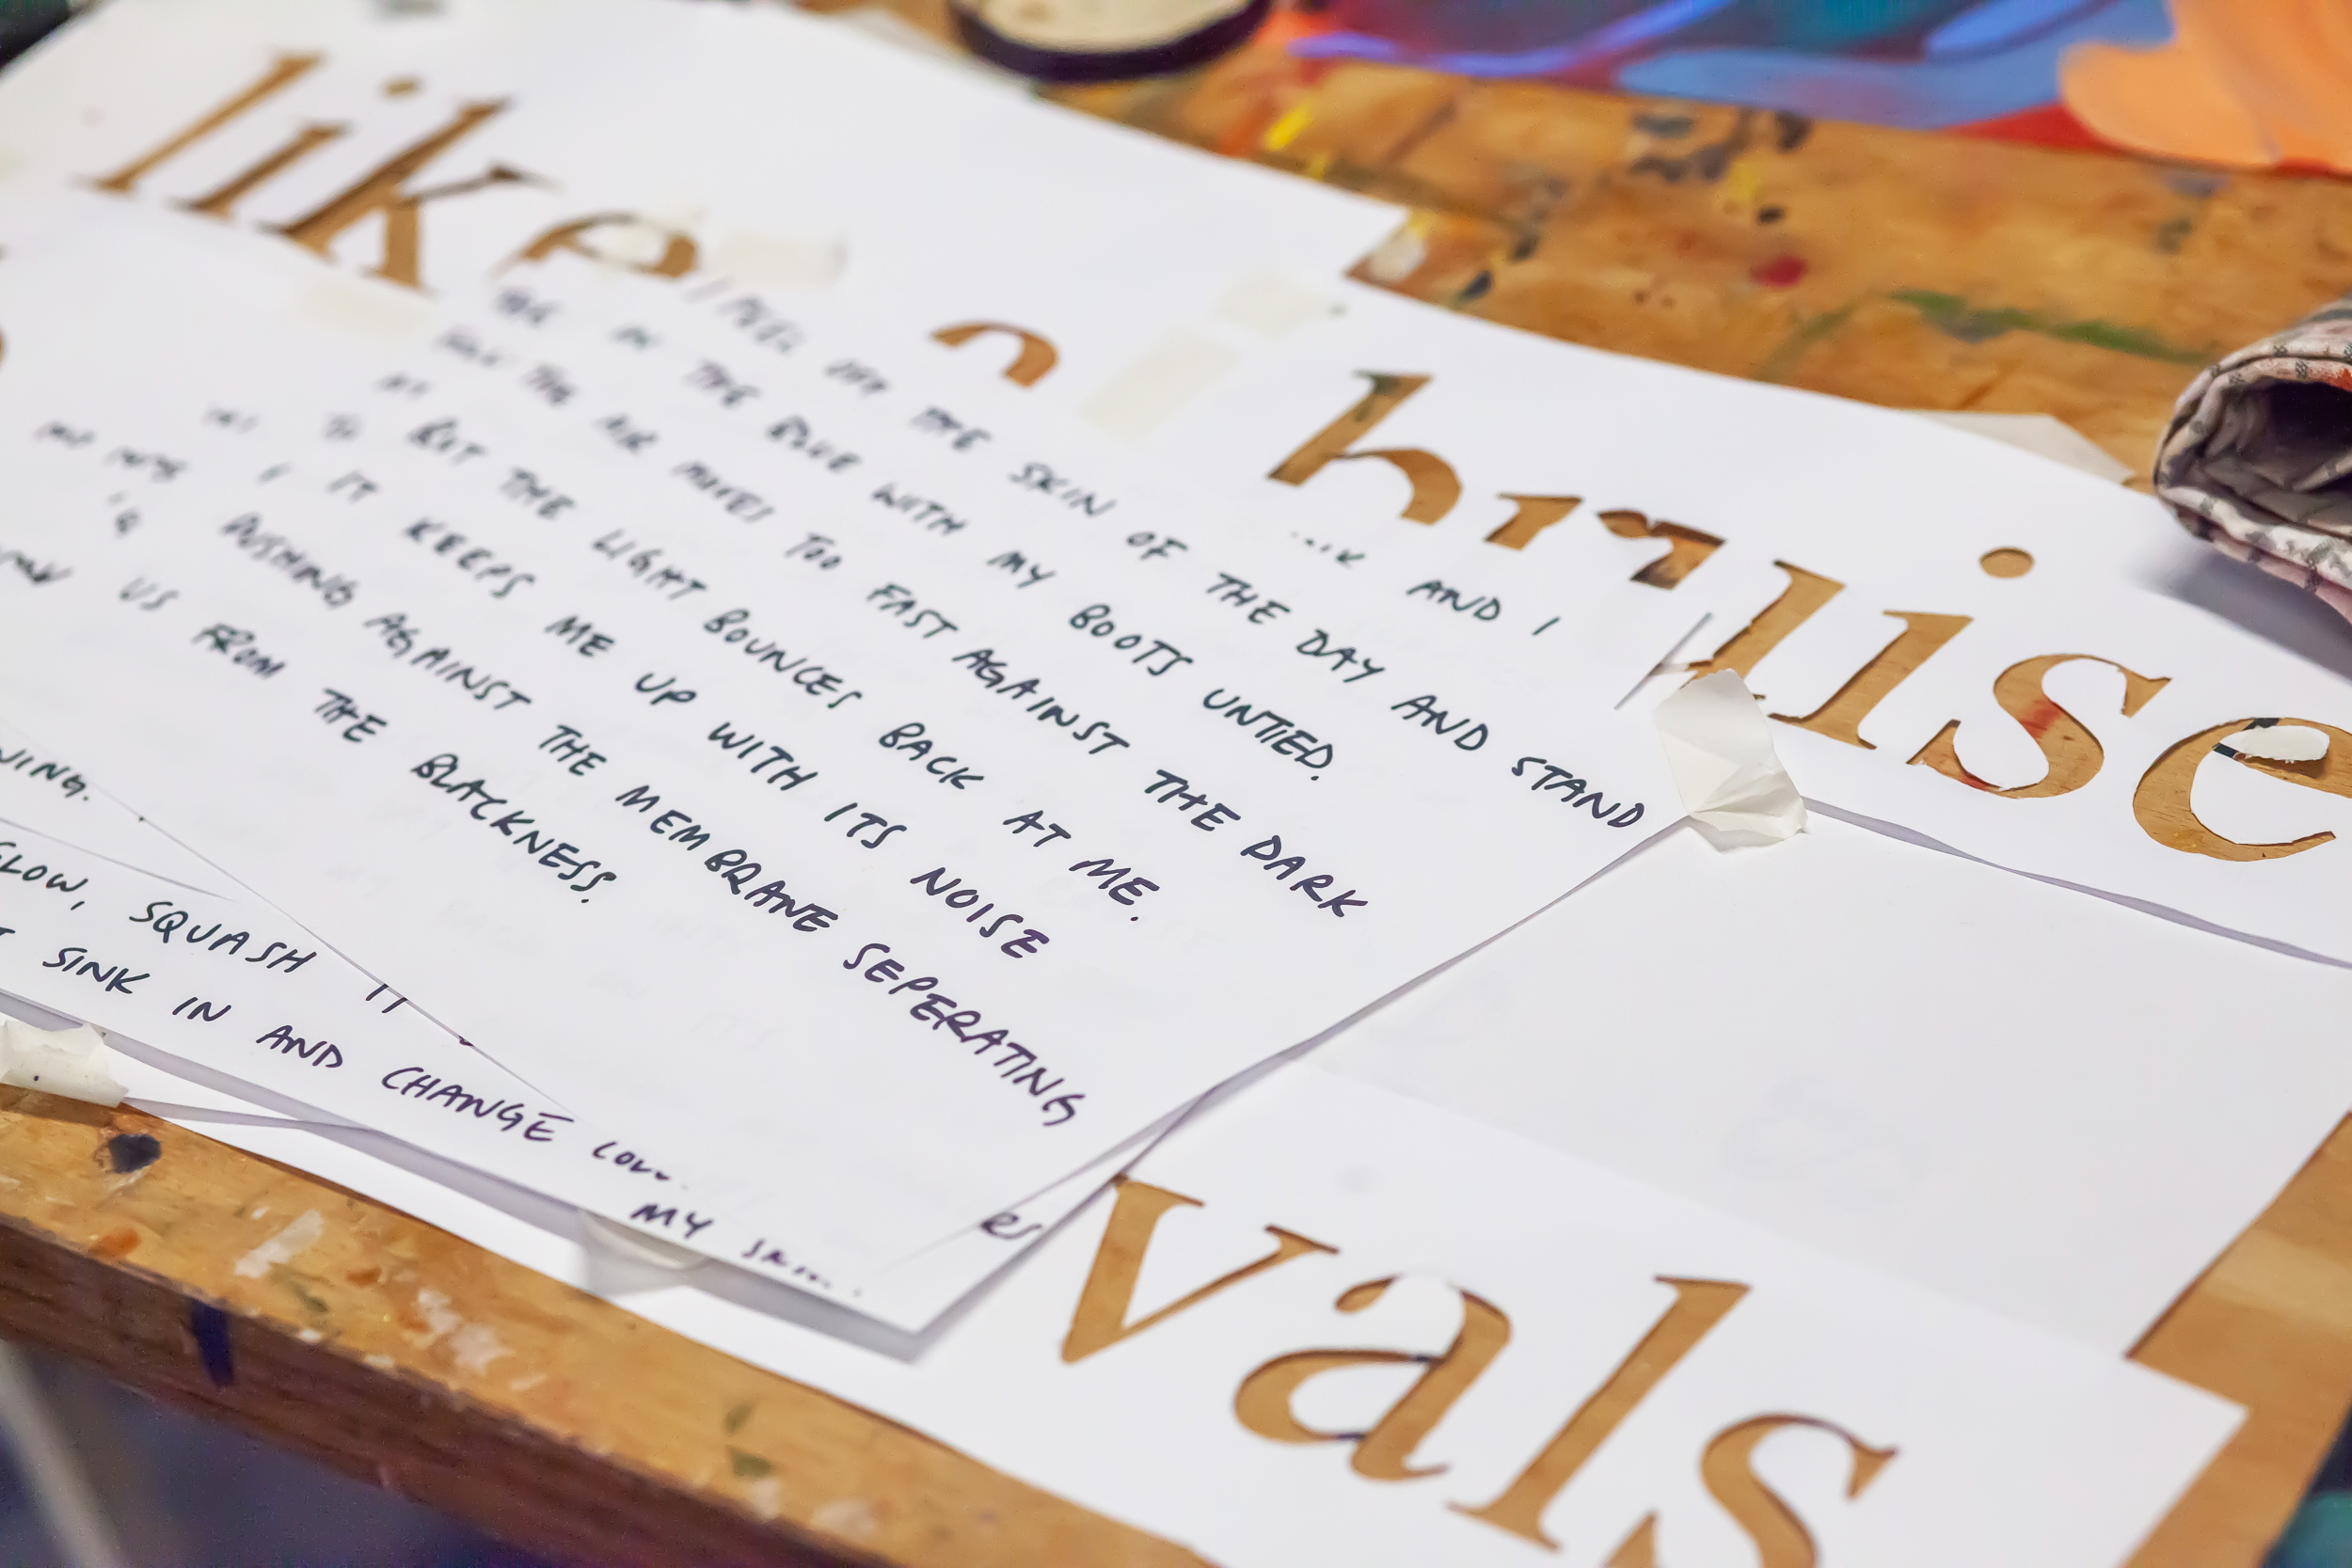 like bruise
AND I
I PEEL OFF THE SKIN OF THE DAY AND STAND
IN THE BLUE WITH MY BOOTS UNTIED.
THE AIR MOVES TOO FAST AGAINST THE DARK
BUT THE LIGHT BOUNCES BACK AT ME.
IT KEEPS ME UP WITH ITS NOISE
PUSHING AGAINST THE MEMBRANE SEPERATING
US FROM THE BLACKNESS.
GLOW, SQUASH IT
SINK IN AND CHANGE
MY
vals